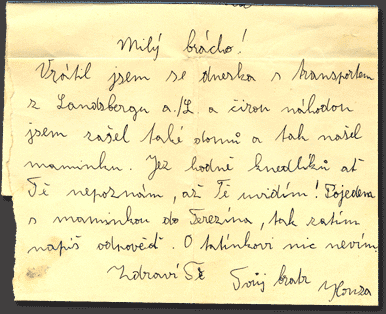 Milý brácho!
Vrátil jsem se dneska s transportem
z Landsbergu a./L a čirou náhodou
jsem zašel také domů a tak našel
maminku. Jez hodně knedlíků ať
Tě nepoznám, až Tě uvidím! Pojedem
s maminkou do Terezína, tak zatím
napiš odpověď. O tatínkovi nic nevím.
Zdraví Tě
Tvůj bratr
Honza